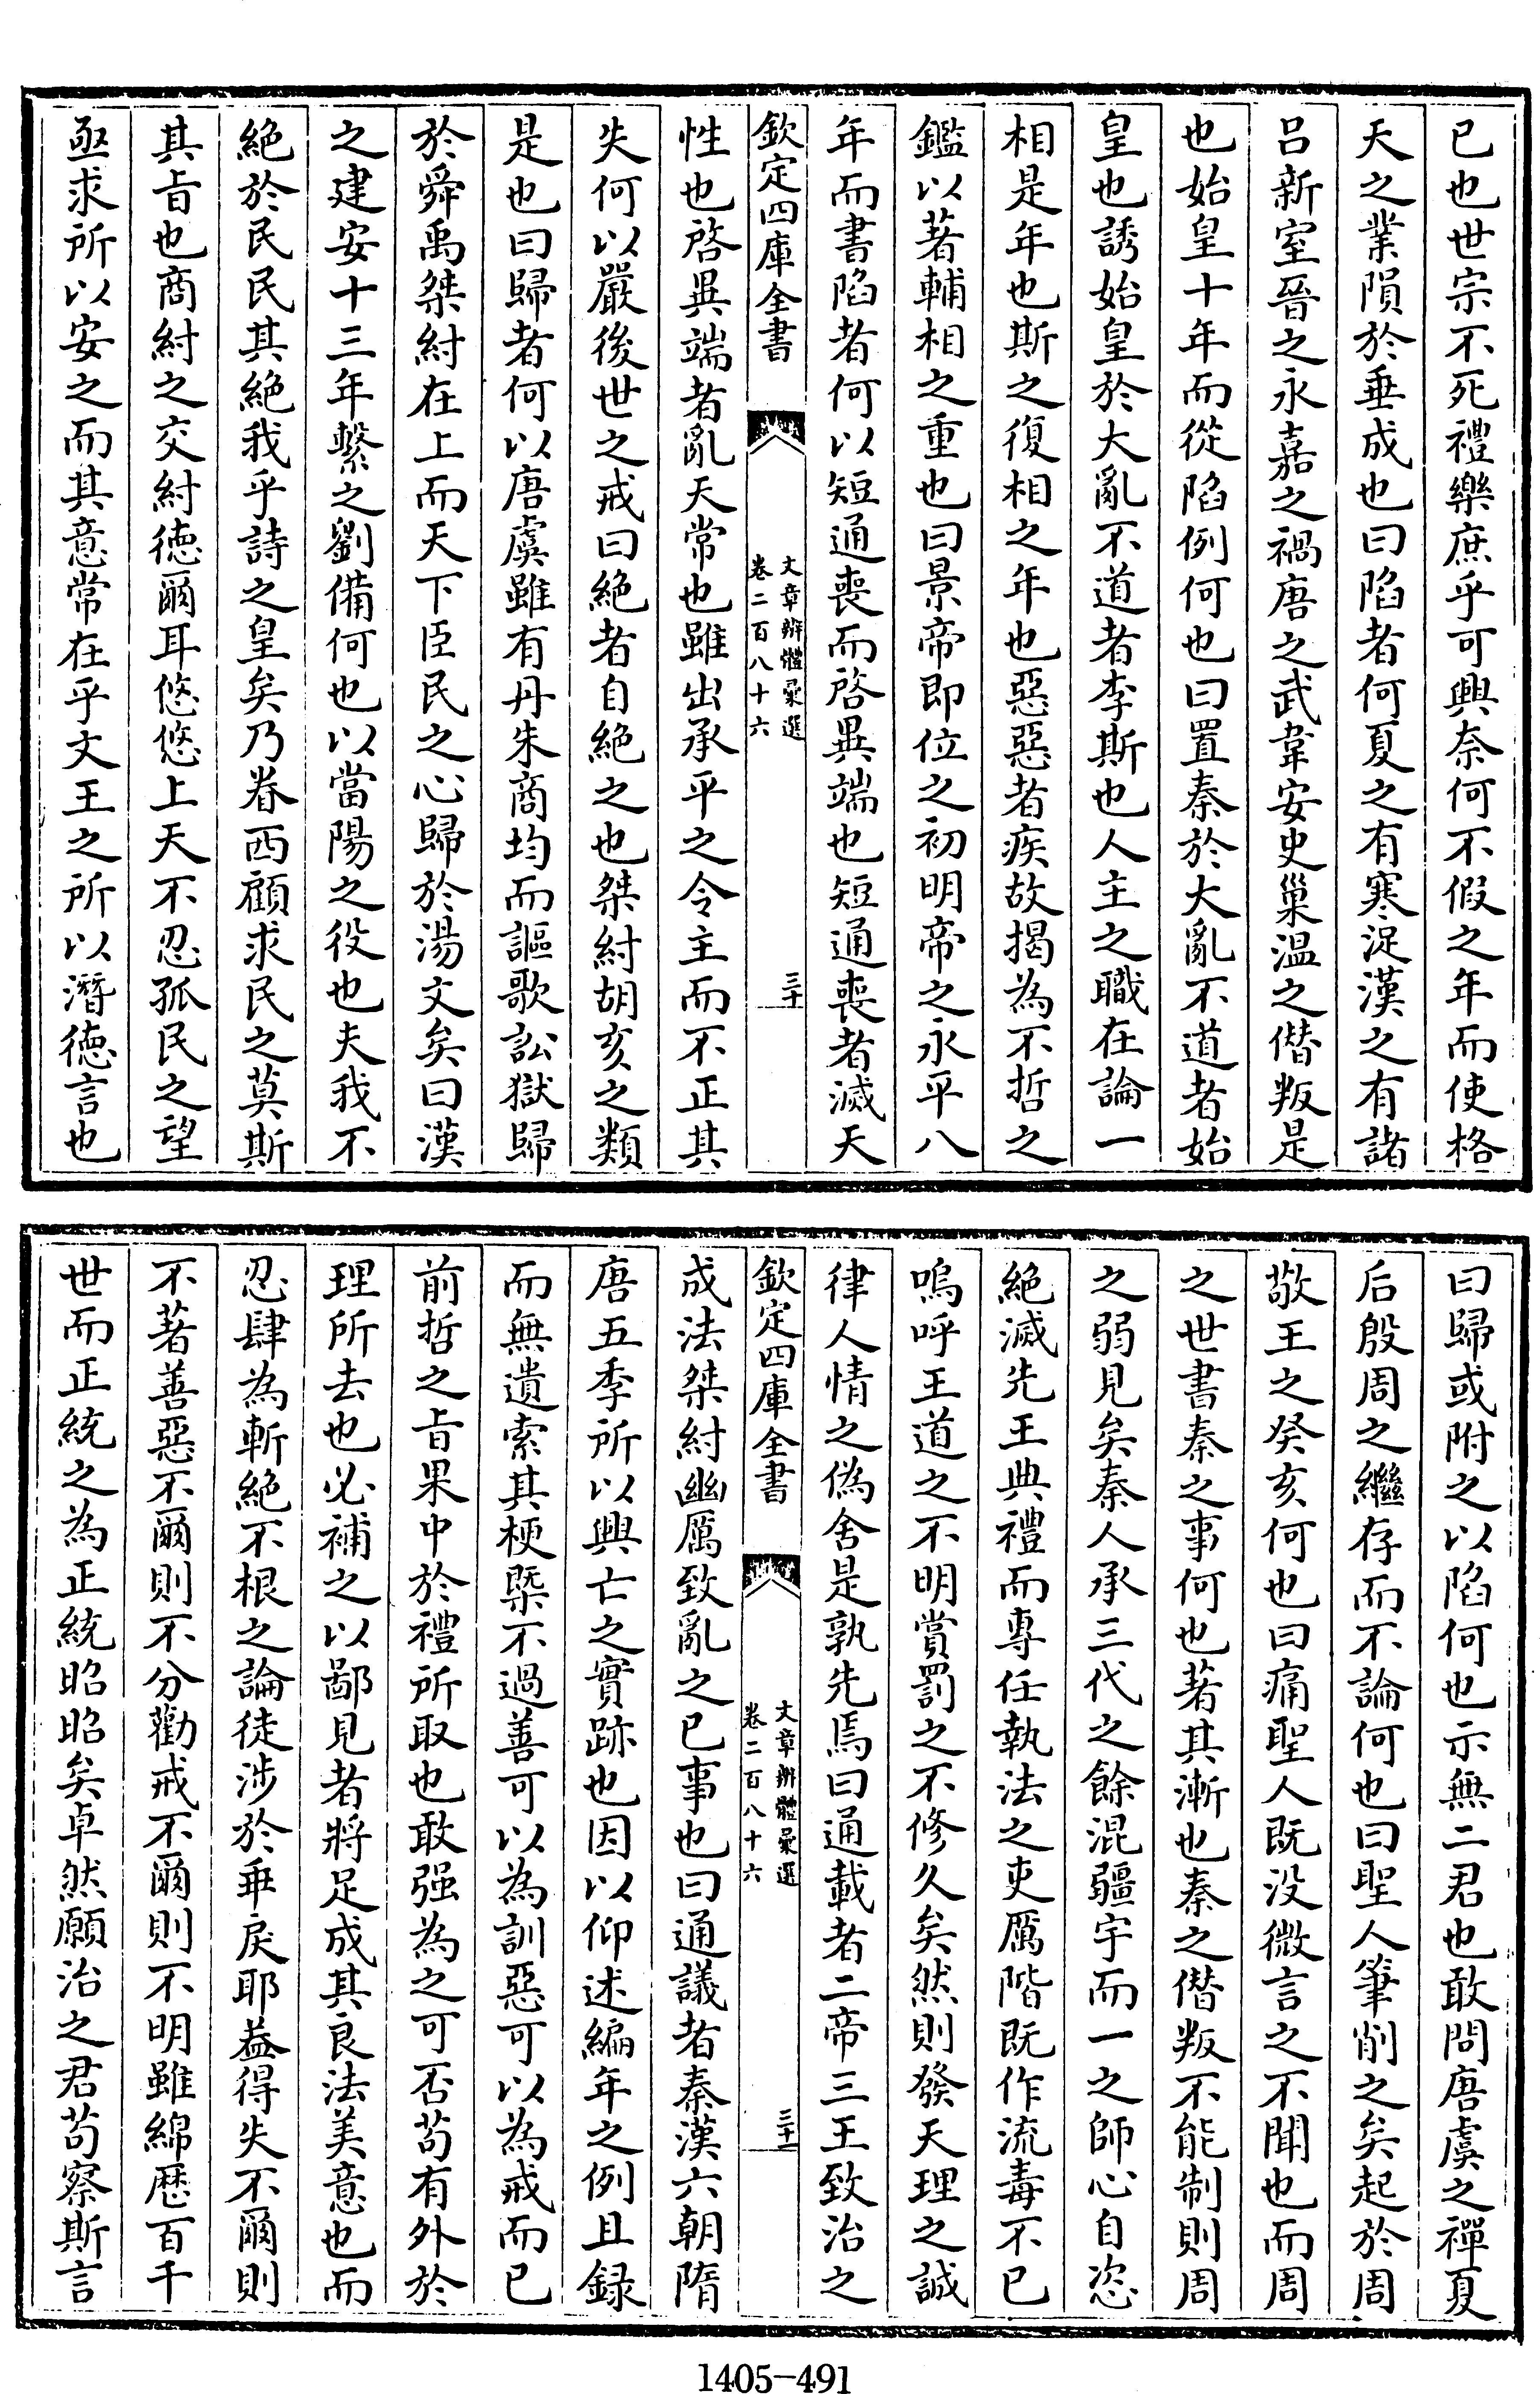 已也世宗不死禮樂庶乎可興奈何不假之年而使格
天之業隕於垂成也曰陷者何夏之有寒浞漢之有諸
吕新室晉之永嘉之禍唐之武韋安史巢温之僭叛是
也始皇十年而從陷例何也曰置秦於大亂不道者始
皇也誘始皇於大亂不道者李斯也人主之職在論一
相是年也斯之復相之年也惡惡者疾故揭為不哲之
鑑以著輔相之重也曰景帝即位之初明帝之永平八
年而書陷者何以短通喪而啓異端也短通喪者滅天
欽定四庫全書
文章辨體彙選
卷二百八十六
三十
性也啓異端者亂天常也雖出承平之令主而不正其
失何以嚴後世之戒曰絶者自絶之也桀紂胡亥之類
是也曰歸者何以唐虞雖有丹朱商均而謳歌訟獄歸
於舜禹桀紂在上而天下臣民之心歸於湯文矣曰漢
之建安十三年繫之劉備何也以當陽之役也夫我不
絶於民民其絶我乎詩之皇矣乃眷西顧求民之莫斯
其㫖也商紂之交紂徳爾耳悠悠上天不忍孤民之望
亟求所以安之而其意常在乎文王之所以濳徳言也
曰歸或附之以陷何也示無二君也敢問唐虞之禪夏
后殷周之繼存而不論何也曰聖人筆削之矣起於周
敬王之癸亥何也曰痛聖人既没微言之不聞也而周
之世書秦之事何也著其漸也秦之僭叛不能制則周
之弱見矣秦人承三代之餘混疆宇而一之師心自恣
絶滅先王典禮而專任執法之吏厲階既作流毒不已
嗚呼王道之不明賞罰之不修久矣然則發天理之誠
律人情之偽舍是孰先焉曰通載者二帝三王致治之
欽定四庫全書
文章辨體彙選
卷二百八十六
三十一
成法桀紂幽厲致亂之已事也曰通議者秦漢六朝隋
唐五季所以興亡之實跡也因以仰述編年之例且録
而無遺索其梗槩不過善可以為訓惡可以為戒而已
前哲之㫖果中於禮所取也敢强為之可否茍有外於
理所去也必補之以鄙見者將足成其良法美意也而
忍肆為斬絶不根之論徒涉於乖戾耶葢得失不爾則
不著善惡不爾則不分勸戒不爾則不明雖綿歴百千
世而正統之為正統昭昭矣卓然願治之君茍察斯言
1405-491